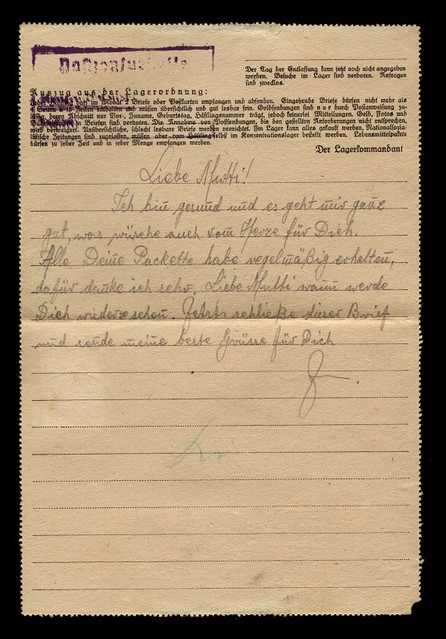 Postzensurstelle
Der Tag der Entlassung kann jetzt noch nicht angegeben
werden. Besuche im Lager sind verboten. Anfragen
sind zwecklos.
Auszug aus der Lagerordnung:
im Monat 2 Briefe oder Postkarten empfangen und absenden. Eingehende Briefe dürfen nicht mehr als
4 Seiten à 15 Zeilen enthalten und müssen übersichtlich und gut lesbar sein. Geldsendungen sind nur durch Postanweisung zu-
lässig, deren Abschnitt nur Vor-, Zuname, Geburtstag, Häftlingsnummer trägt, jedoch keinerlei Mitteilungen. Geld, Fotos und
in Briefen sind verboten. Die Annahme von Postsendungen, die den gestellten Anforderungen nicht entsprechen,
wird verweigert. Unübersichtliche, schlecht lesbare Briefe werden vernichtet. Im Lager kann alles gekauft werden. Nationalsozia-
listische Zeitungen sind zugelassen, müssen aber vom Häftling im Konzentrationslager bestellt werden. Lebensmittelpakete
dürfen zu jeder Zeit und in jeder Menge empfangen werden.
Der Lagerkommandant
Liebe Mutti!
Ich bin gesund und es geht mir ganz
gut, was wüsche auch vom Herze für Dich.
Alle Deine Packette habe regelmäßig erhalten,
dafür danke ich sehr. Liebe Mutti wann werde
Dich wiedersehen. Jetzt schließe dieser Brief
und sende meine beste Grüsse für Dich